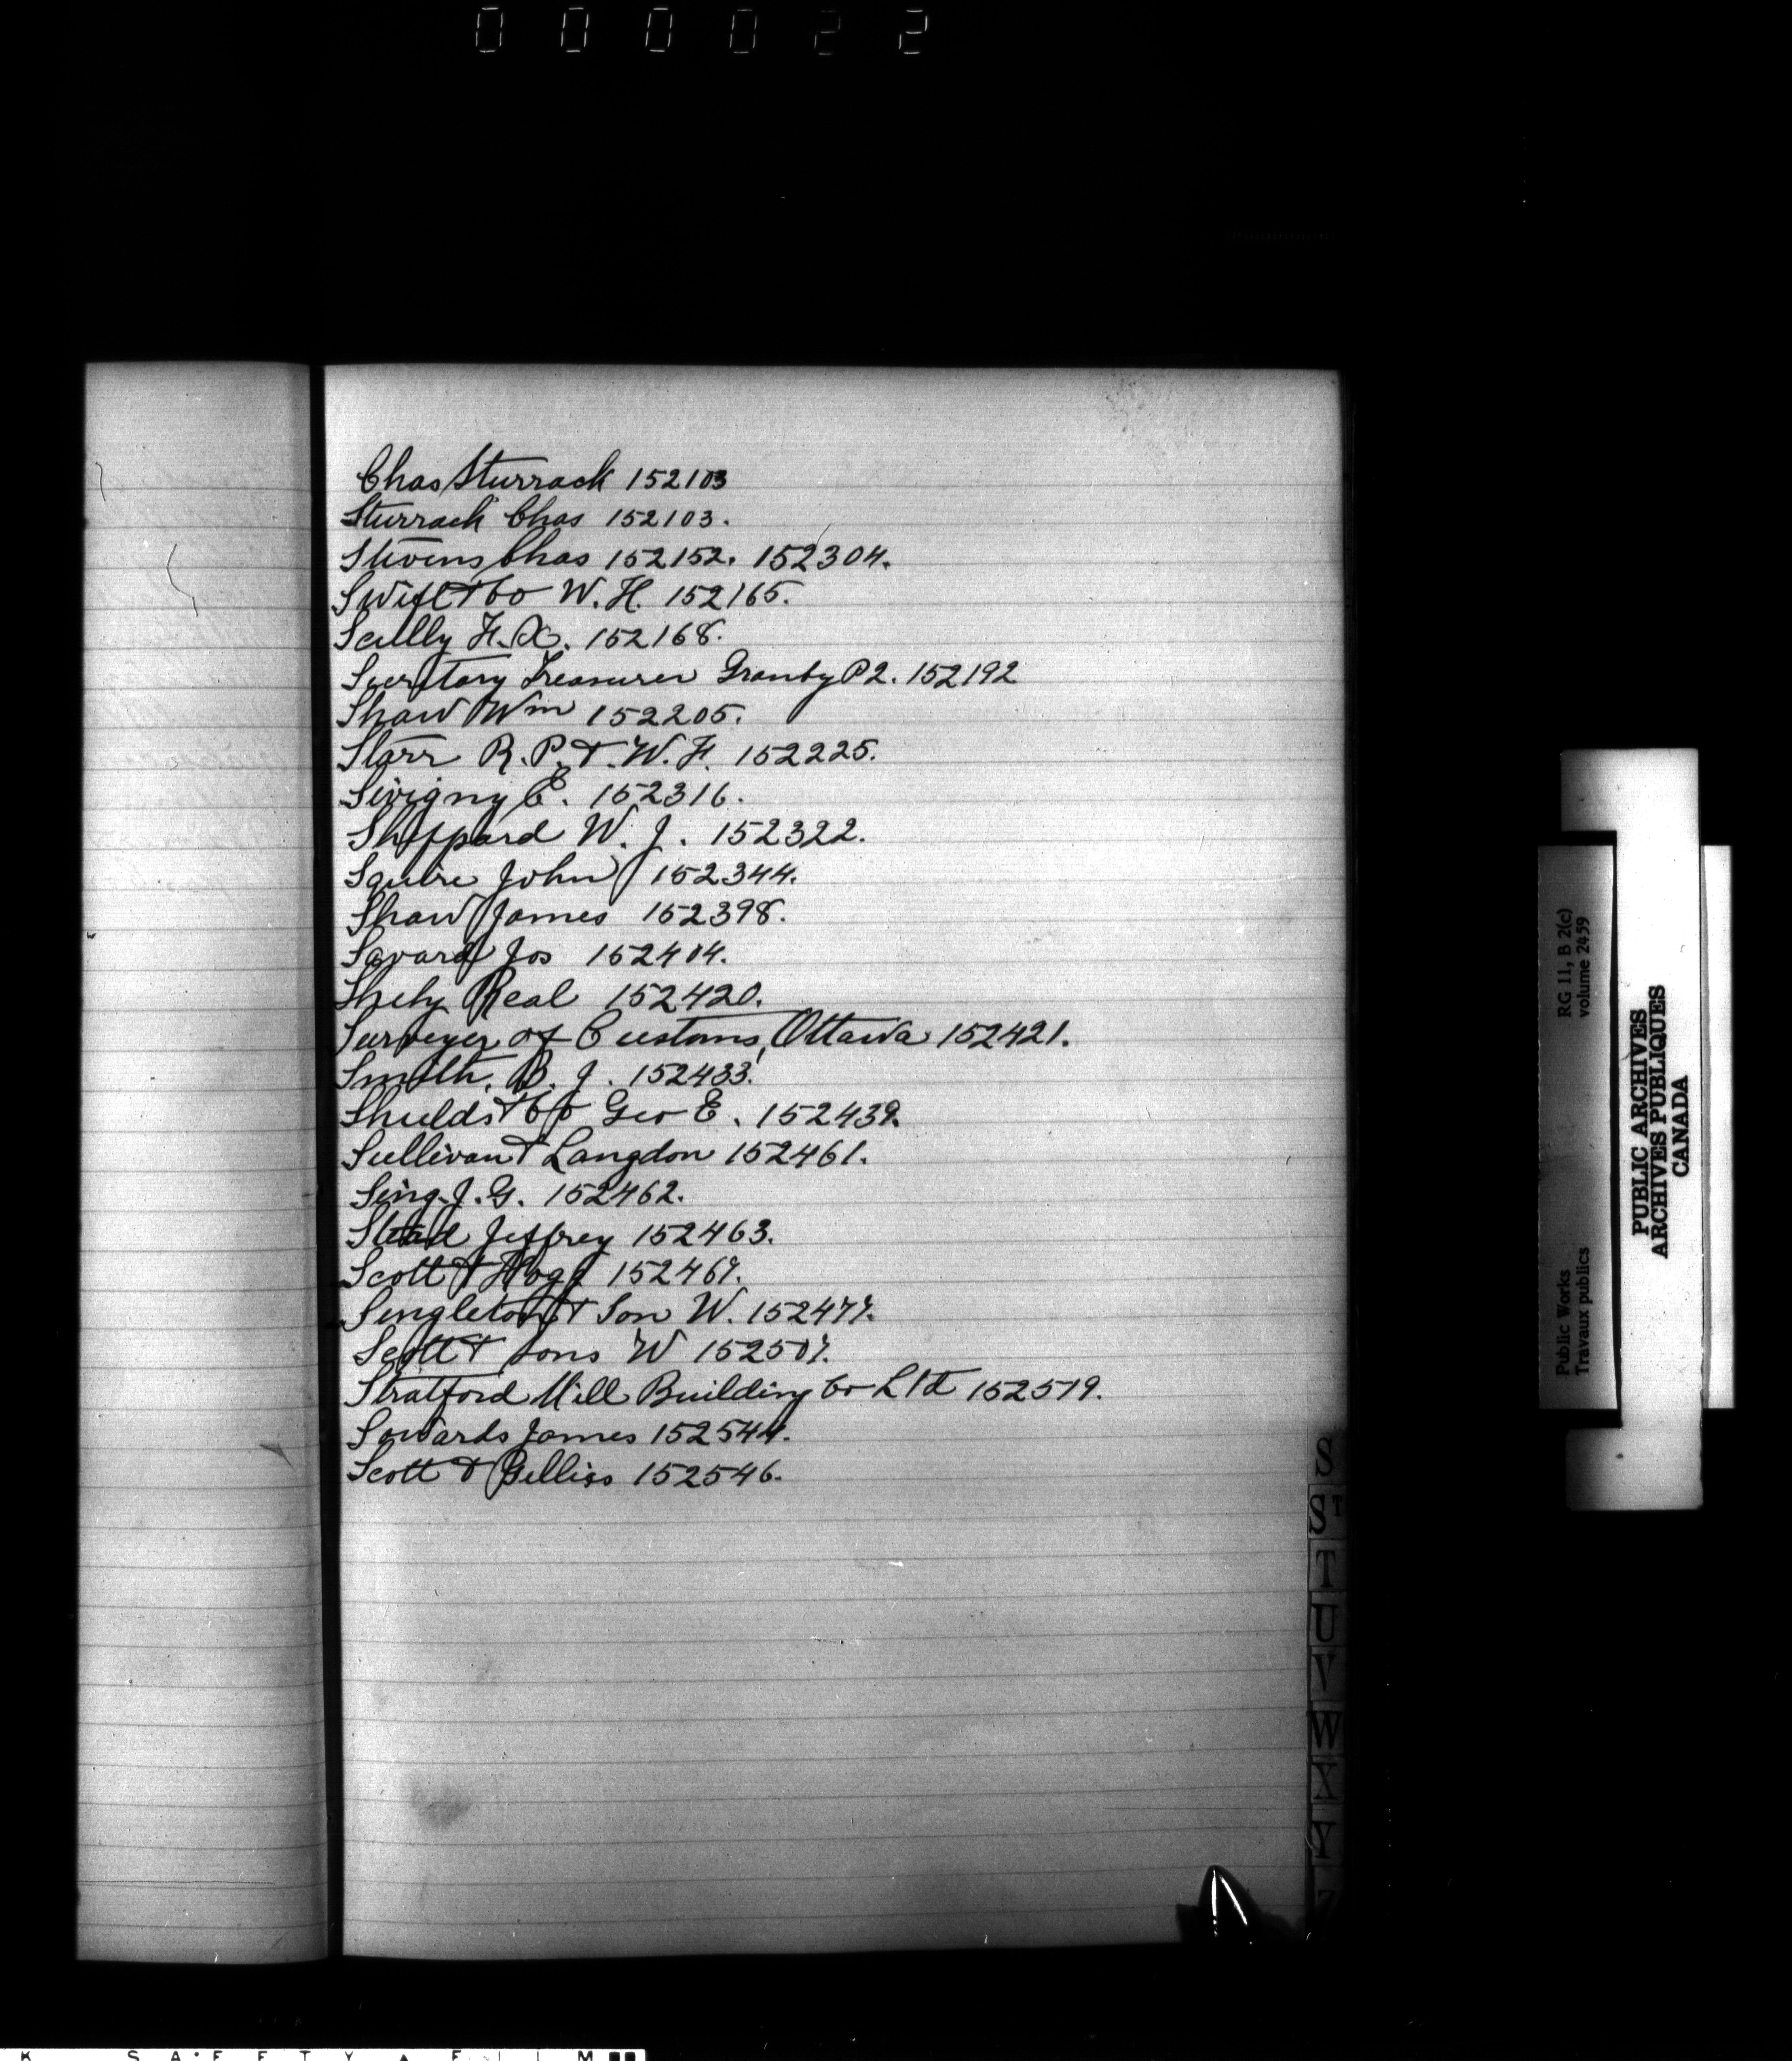 000022
Chas Sturrock 152103
Sturrock Chas 152103.
Stevens Chas 152152. 152304.
Swift & Co W. H. 152165.
Scully F. X. 152168.
Secretary Treasurer Granby P2. 152192
Shaw Wm 152205.
Starr R. P. & W. F. 152225.
Sivigny E. 152316.
Sheppard W. J. 152322.
Squire John 152344.
Shaw James 152398.
Savard Jos 152404.
Real 152420.
Surveyer of Customs, Ottawa 152421.
Smith, B. J. 152433.
Shields & Co Geo E. 152439.
Sullivan & Langdon 152461.
Sing J. G. 152462.
Stead Jeffrey 152463.
Scott & Hogg 152467.
Singleton & Son W. 152477.
Scott & Sons W 152507.
Stratford Mill Building Co Ltd 152519.
Sowards James 152544.
Scott & Gilliss 152546.
S
ST
T
U
V
W
X
Y
Z
RG 11, B 2(c)
volume 2459
Public Works
Travaux publics
PUBLIC ARCHIVES
ARCHIVES PUBLIQUES
CANADA
K SAFETY FILM